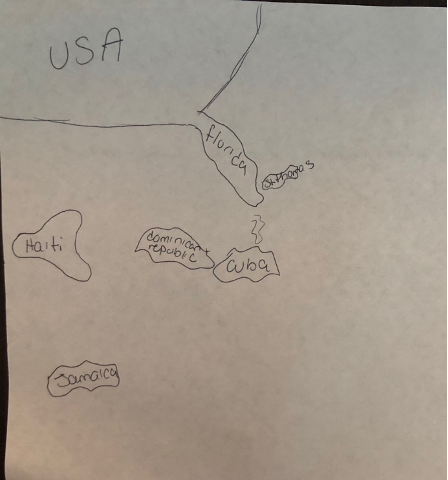 USA
florida
St. Thomas
Haiti
dominican
republic
Cuba
Jamaica